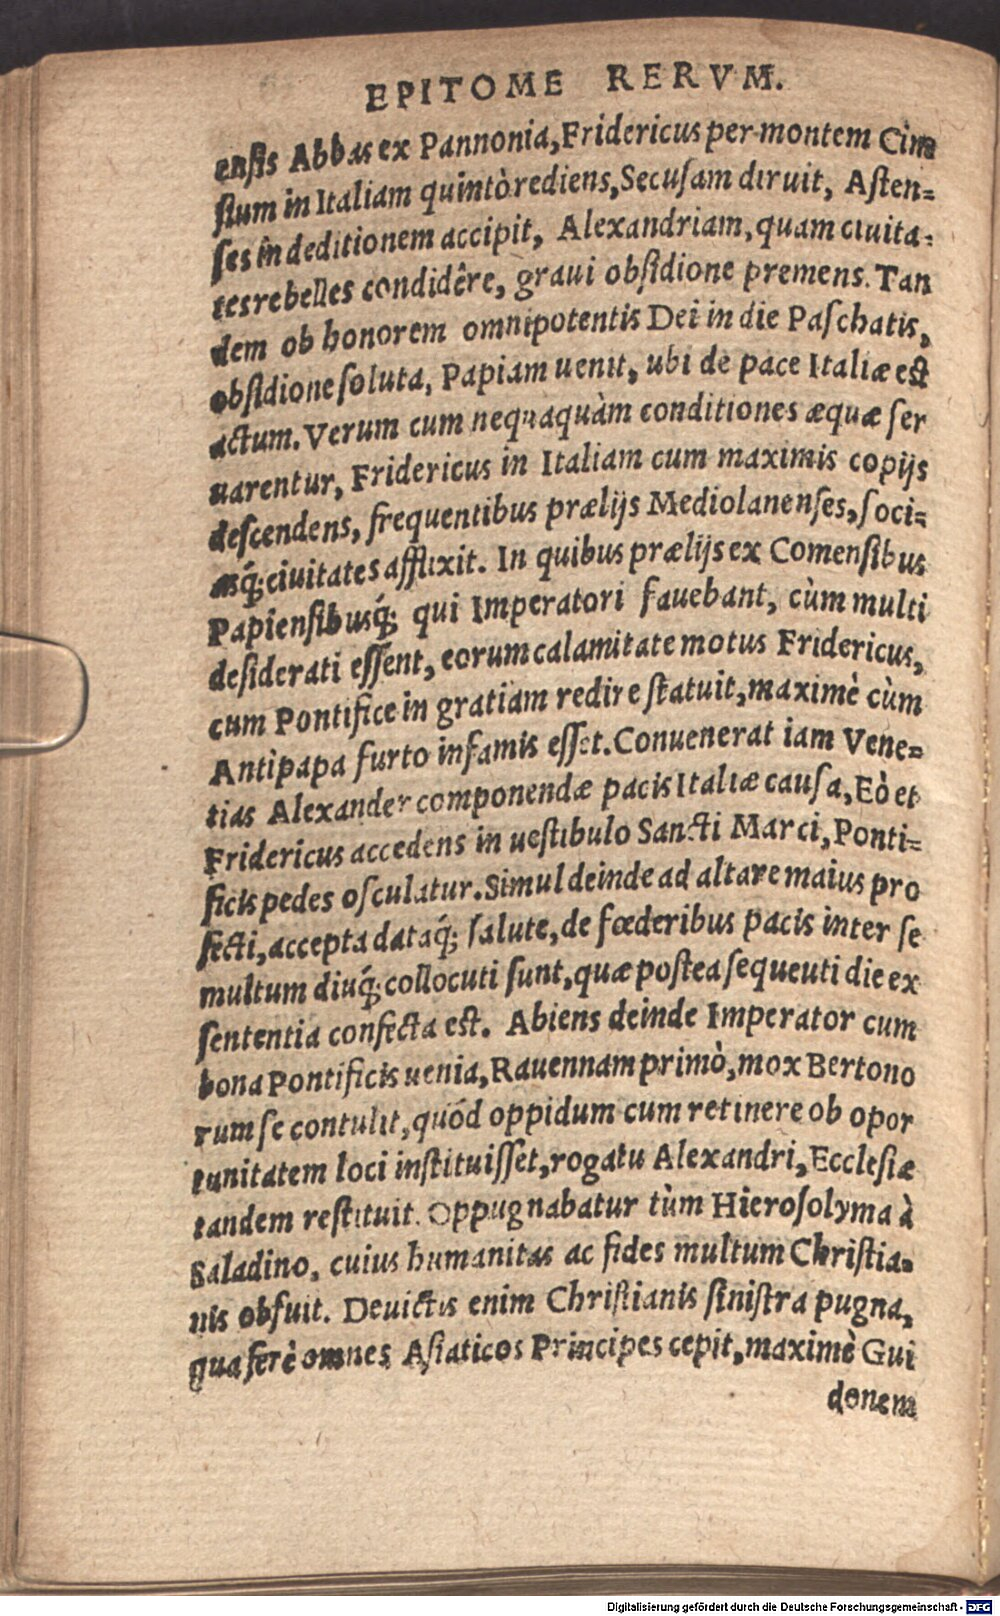 EPITOME RERVM.
ensis Abbas ex Pannonia, Fridericus per montem Cini
sium in Italiam quintò rediens, Secusam diruit, Asten-
ses in deditionem accipit, Alexandriam, quam ciuita-
tes rebelles condidêre, graui obsidione premens. Tan
dem ob honorem omnipotentis Dei in die Paschatis,
obsidione soluta, Papiam uenit, ubi de pace Italiæ est
actum. Verum cum nequaquàm conditiones æquæ ser
uarentur, Fridericus in Italiam cum maximis copijs
descendens, frequentibus prælijs Mediolanenses, soci-
asq́; ciuitates afflixit. In quibus prælijs ex Comensibus
Papiensibusq́; qui Imperatori fauebant, cùm multi
desiderati essent, eorum calamitate motus Fridericus,
cum Pontifice in gratiam redire statuit, maximè cùm
Antipapa furto infamis esset. Conuenerat iam Vene-
tias Alexander componendæ pacis Italiæ causa, Eò et
Fridericus accedens in uestibulo Sancti Marci, Ponti-
ficis pedes osculatur. Simul deinde ad altare maius pro
fecti, accepta dataq́; salute, de fœderibus pacis inter se
multum diuq́; collocuti sunt, quæ postea sequeuti die ex
sententia confecta est. Abiens deinde Imperator cum
bona Pontificis uenia, Rauennam primò, mox Bertono
rum se contulit, quód oppidum cum retinere ob opor
tunitatem loci instituisset, rogatu Alexandri, Ecclesiæ
tandem restituit. Oppugnabatur tùm Hierosolyma à
Saladino, cuius humanitas ac fides multum Christia-
nis obfuit. Deuictis enim Christianis sinistra pugna,
qua ferè omnes Asiaticos Principes cepit, maximè Gui
donem
Digitalisierung gefördert durch die Deutsche Forschungsgemeinschaft - DFG